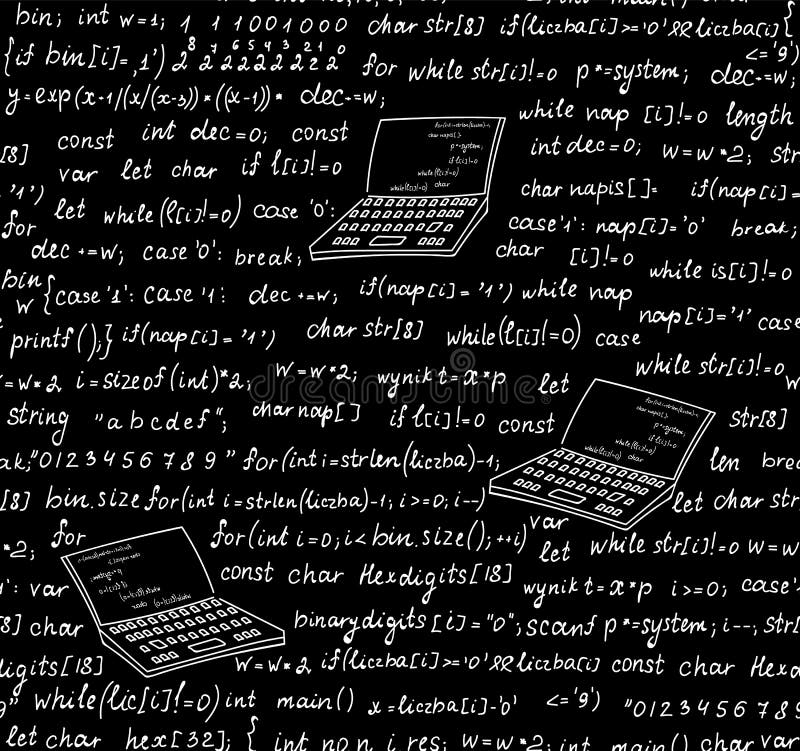 bin; int w=1; 1 1 1001000 char str[8] if(liczba[i]>='0'&&liczba[i]{
<='9')
{if bin[i]=,1') 2⁸ 2⁷ 2⁶ 2⁵ 2⁴ 2³ 2² 2¹ 2⁰ for while str[i]!=0 p*=system; dec+=w;
y=exp(x-1/(x/(x-3))*((x-1))* dec+=w;
while nap [i]!=0 length
const int dec=0; const
int dec=0; w=w*2; str
[8] var let char if l[i]!=0
for(int i=strlen(liczba)-1;
char napis[];
p*=system;
if l[i]!=0
while(l[i]!=0)
while(l[i]!=0) char
= '1')
char napis[]= if(nap[i]=
for let while(l[i]!=0) case '0':
case'1': nap[i]='0' break;
dec +=w; case '0': break;
char [i]!=0
bin while is[i]!=0
w {case '1': case '1: dec +=w; if(nap[i]= '1') while nap
nap[i]='1' case
printf();} if(nap[i]= '1') char str[8] while(l[i]!=0) case
while str[i]!=0
w=w*2 i=sizeof(int)*2; w=w*2; wynik t=x*p let w
string "abcdef"; char nap[] if l[i]!=0 const str[8]
for(int i=strlen(liczba)-1;
char napis[];
p*=system;
if l[i]!=0
while(l[i]!=0)
while(l[i]!=0)
char
ak;"0123456789" for(int i=strlen(liczba)-1; len brea
[8] bin.size for(int i=strlen(liczba)-1; i>=0; i--) let char str
for for(int i=0; i<bin.size(); ++i) var
*2; let while str[i]!=0 w=w
i': var const char Hexdigits[18] wynik t=x*p i>=0; case'
[8] char binarydigits[i]="0"; scanf p*=system; i--; str[
digits[18] w=w*2 if(liczba[i]>='0'&&liczba[i] const char Hexd
while(lic[i]!=0) int main() x=liczba[i]-'0' <='9') "0123456789
let char hex[32]; { int n i res; w=w*2; int main() char var